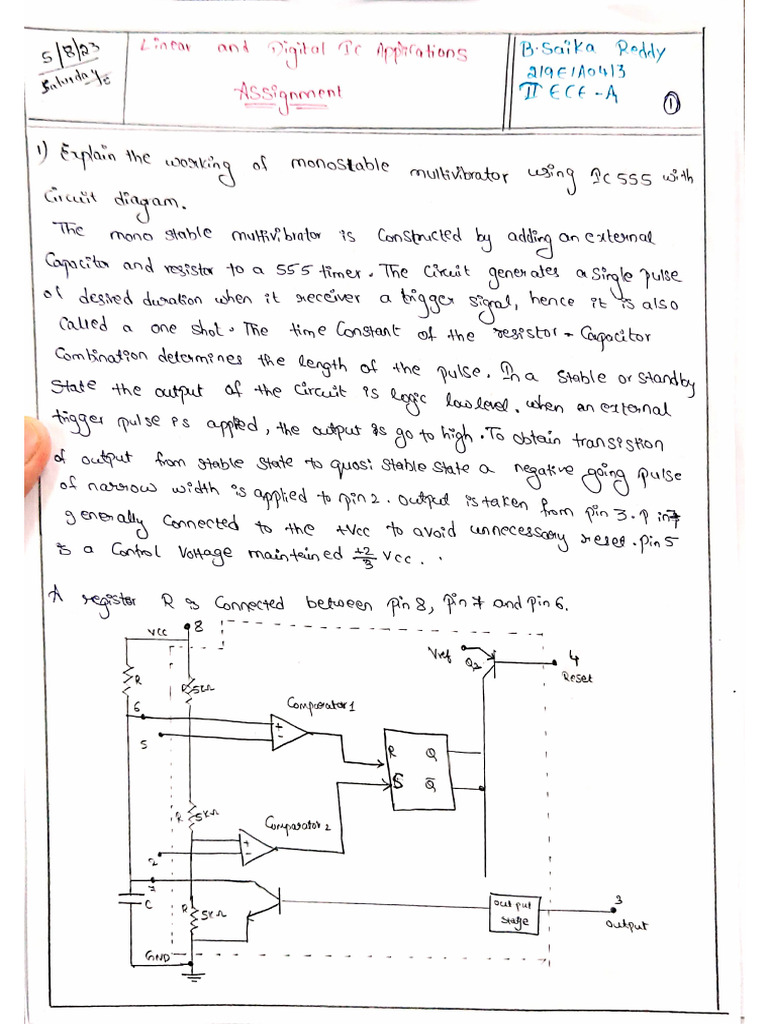 5/8/23
Saturday
Linear and Digital Ic Applications
Assignment
B. Saika Reddy
219E1A0413
II ECE-A
1
1) Explain the working of monostable multivibrator using Ic 555 with
Circuit diagram.
The mono stable multivibrator is Constructed by adding an external
Capacitor and resistor to a 555 timer. The Circuit generates a single pulse
of desired duration when it receiver a trigger signal, hence it is also
Called a one shot. The time Constant of the resistor - Capacitor
Combination determines the length of the pulse. In a stable or standby
State the output of the circuit is logic low level. when an external
trigger pulse is applied, the output is go to high. To obtain transistion
of output from stable state to quasi stable state a negative going pulse
of narrow width is applied to pin 2. Output is taken from pin 3. Pin 7
generally Connected to the +Vcc to avoid unnecessary reset. pin 5
is a Control Voltage maintained +2/3 Vcc.
A register R is Connected between pin 8, pin 7 and pin 6.
VCC 8
R
R 5KΩ
6
5
Comparator 1
+
-
Vref Q2
4
Reset
R Q
S Q̅
R 5KΩ
Comparator 2
+
-
2
7
C
R 5KΩ
output
stage
3
output
GND